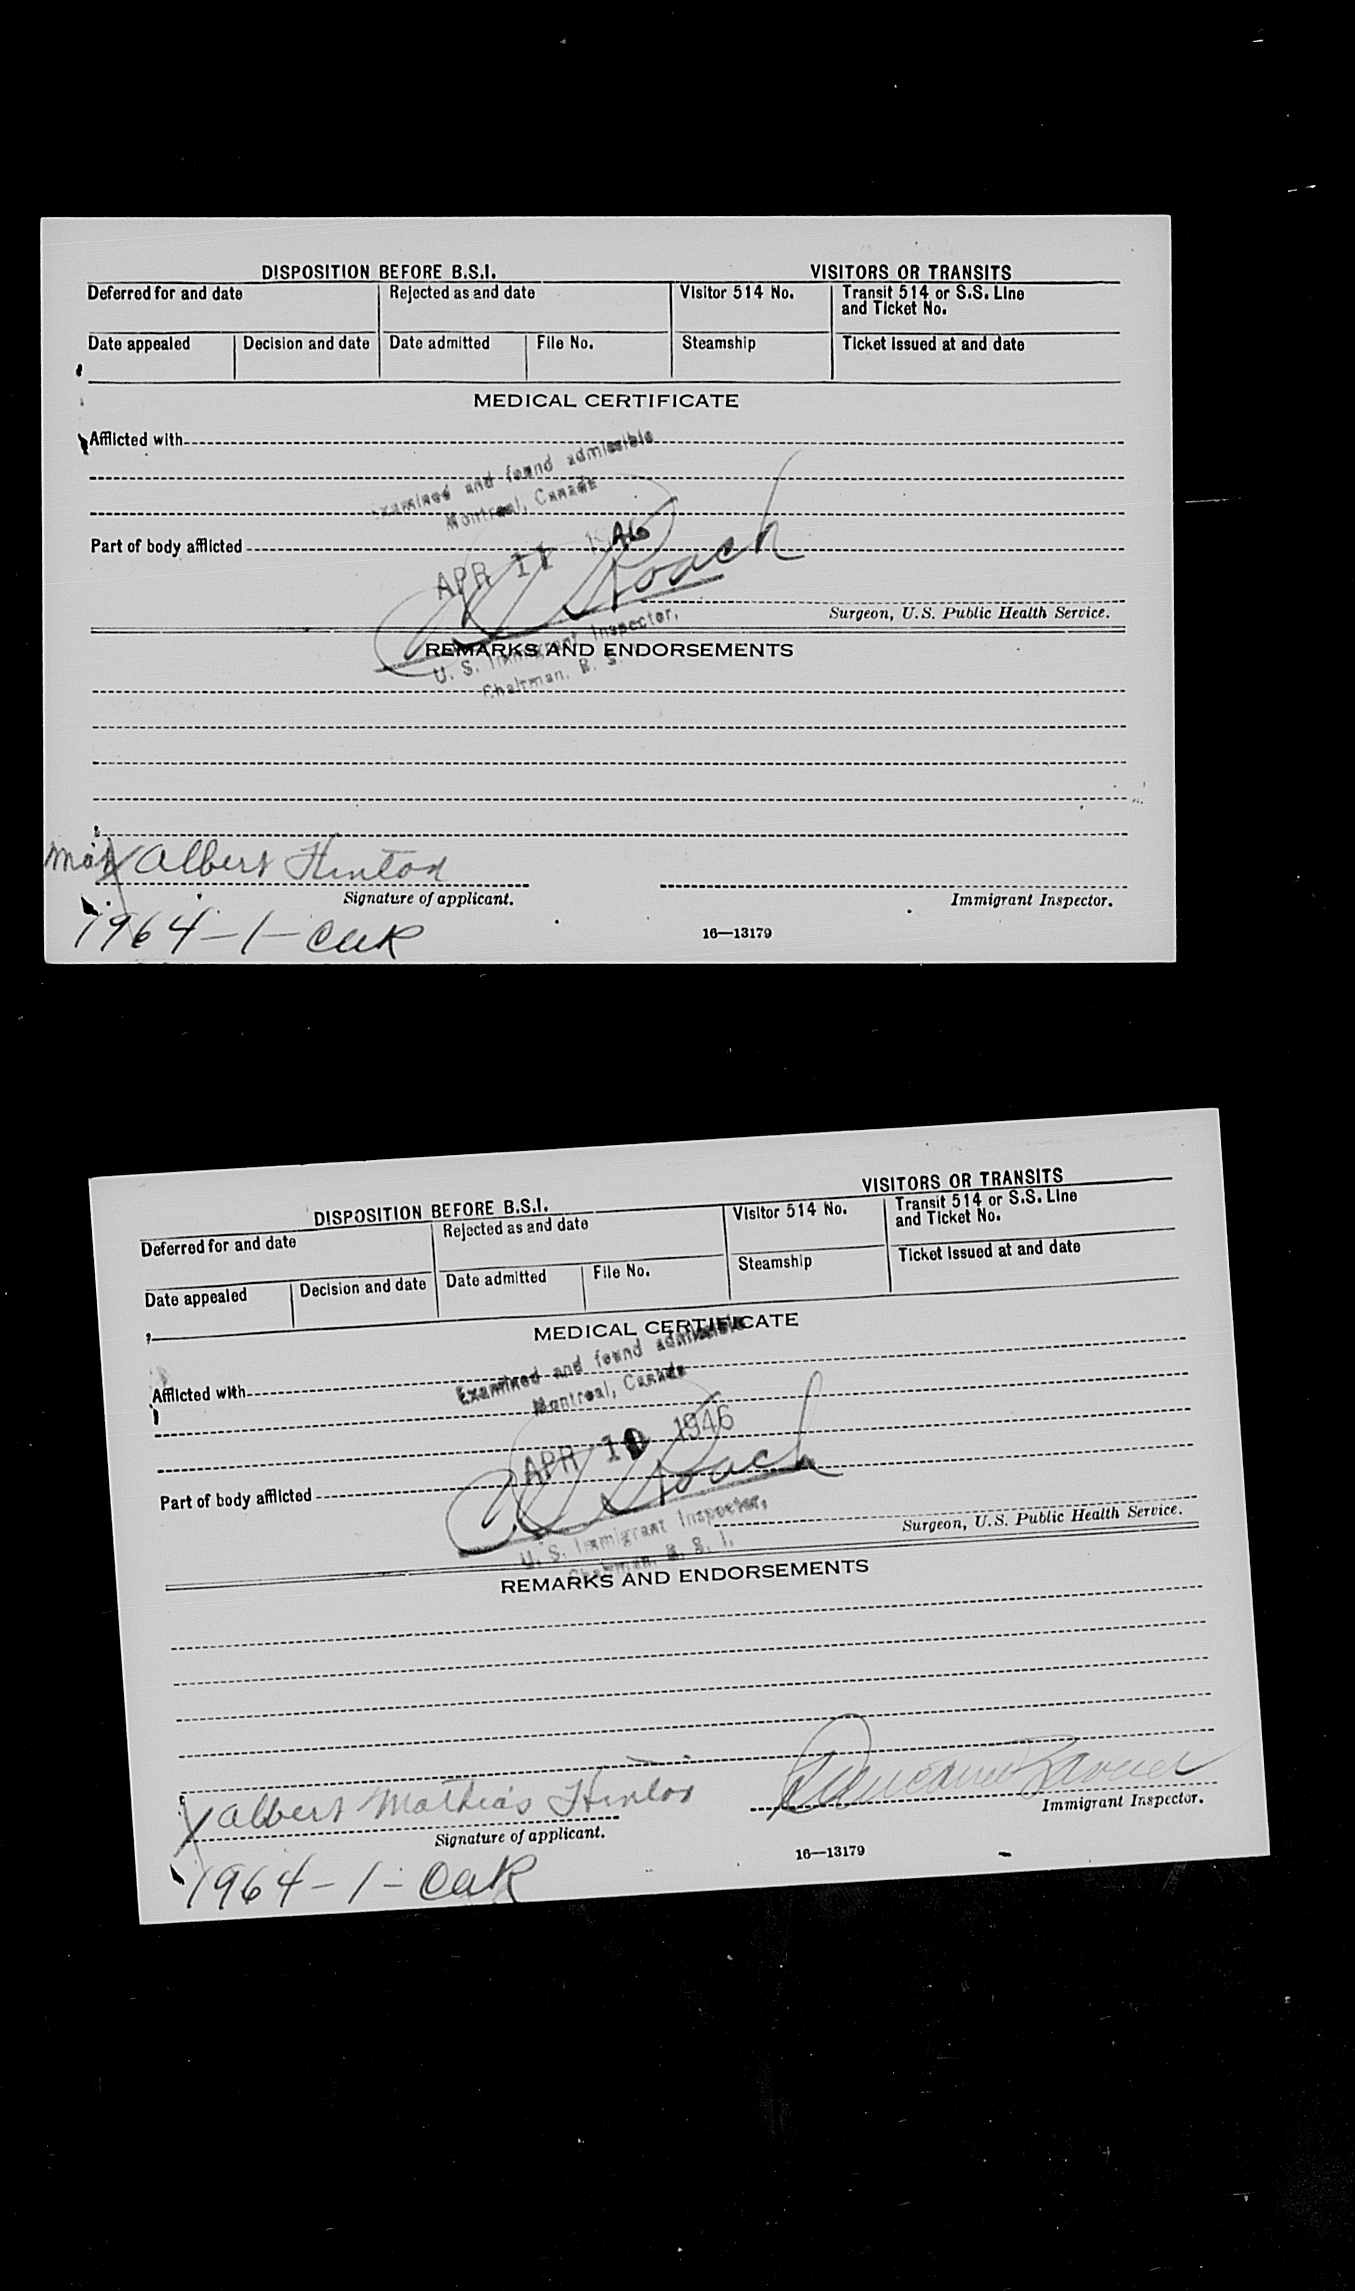 DISPOSITION BEFORE B.S.I. VISITORS OR TRANSITS
Deferred for and date Rejected as and date Visitor 514 No. Transit 514 or S.S. Line and Ticket No.
Date appealed Decision and date Date admitted File No. Steamship Ticket issued at and date
MEDICAL CERTIFICATE
Afflicted with
Examined and found admissible
Montreal, Canada
Part of body afflicted
APR 11 1946
Roach
Surgeon, U.S. Public Health Service.
U. S. Immigrant Inspector,
REMARKS AND ENDORSEMENTS
Chairman, B. S.
Albert Hinton
Signature of applicant. Immigrant Inspector.
1964-1-
16—13179
DISPOSITION BEFORE B.S.I. VISITORS OR TRANSITS
Deferred for and date Rejected as and date Visitor 514 No. Transit 514 or S.S. Line and Ticket No.
Date appealed Decision and date Date admitted File No. Steamship Ticket issued at and date
MEDICAL CERTIFICATE
Examined and found admissible
Afflicted with
Montreal, Canada
APR 10 1946
Roach
Part of body afflicted
Surgeon, U.S. Public Health Service.
U. S. Immigrant Inspector,
Chairman, B. S. I.
REMARKS AND ENDORSEMENTS
Albert Mathias Hinton
Signature of applicant. Immigrant Inspector.
1964-1-
16—13179